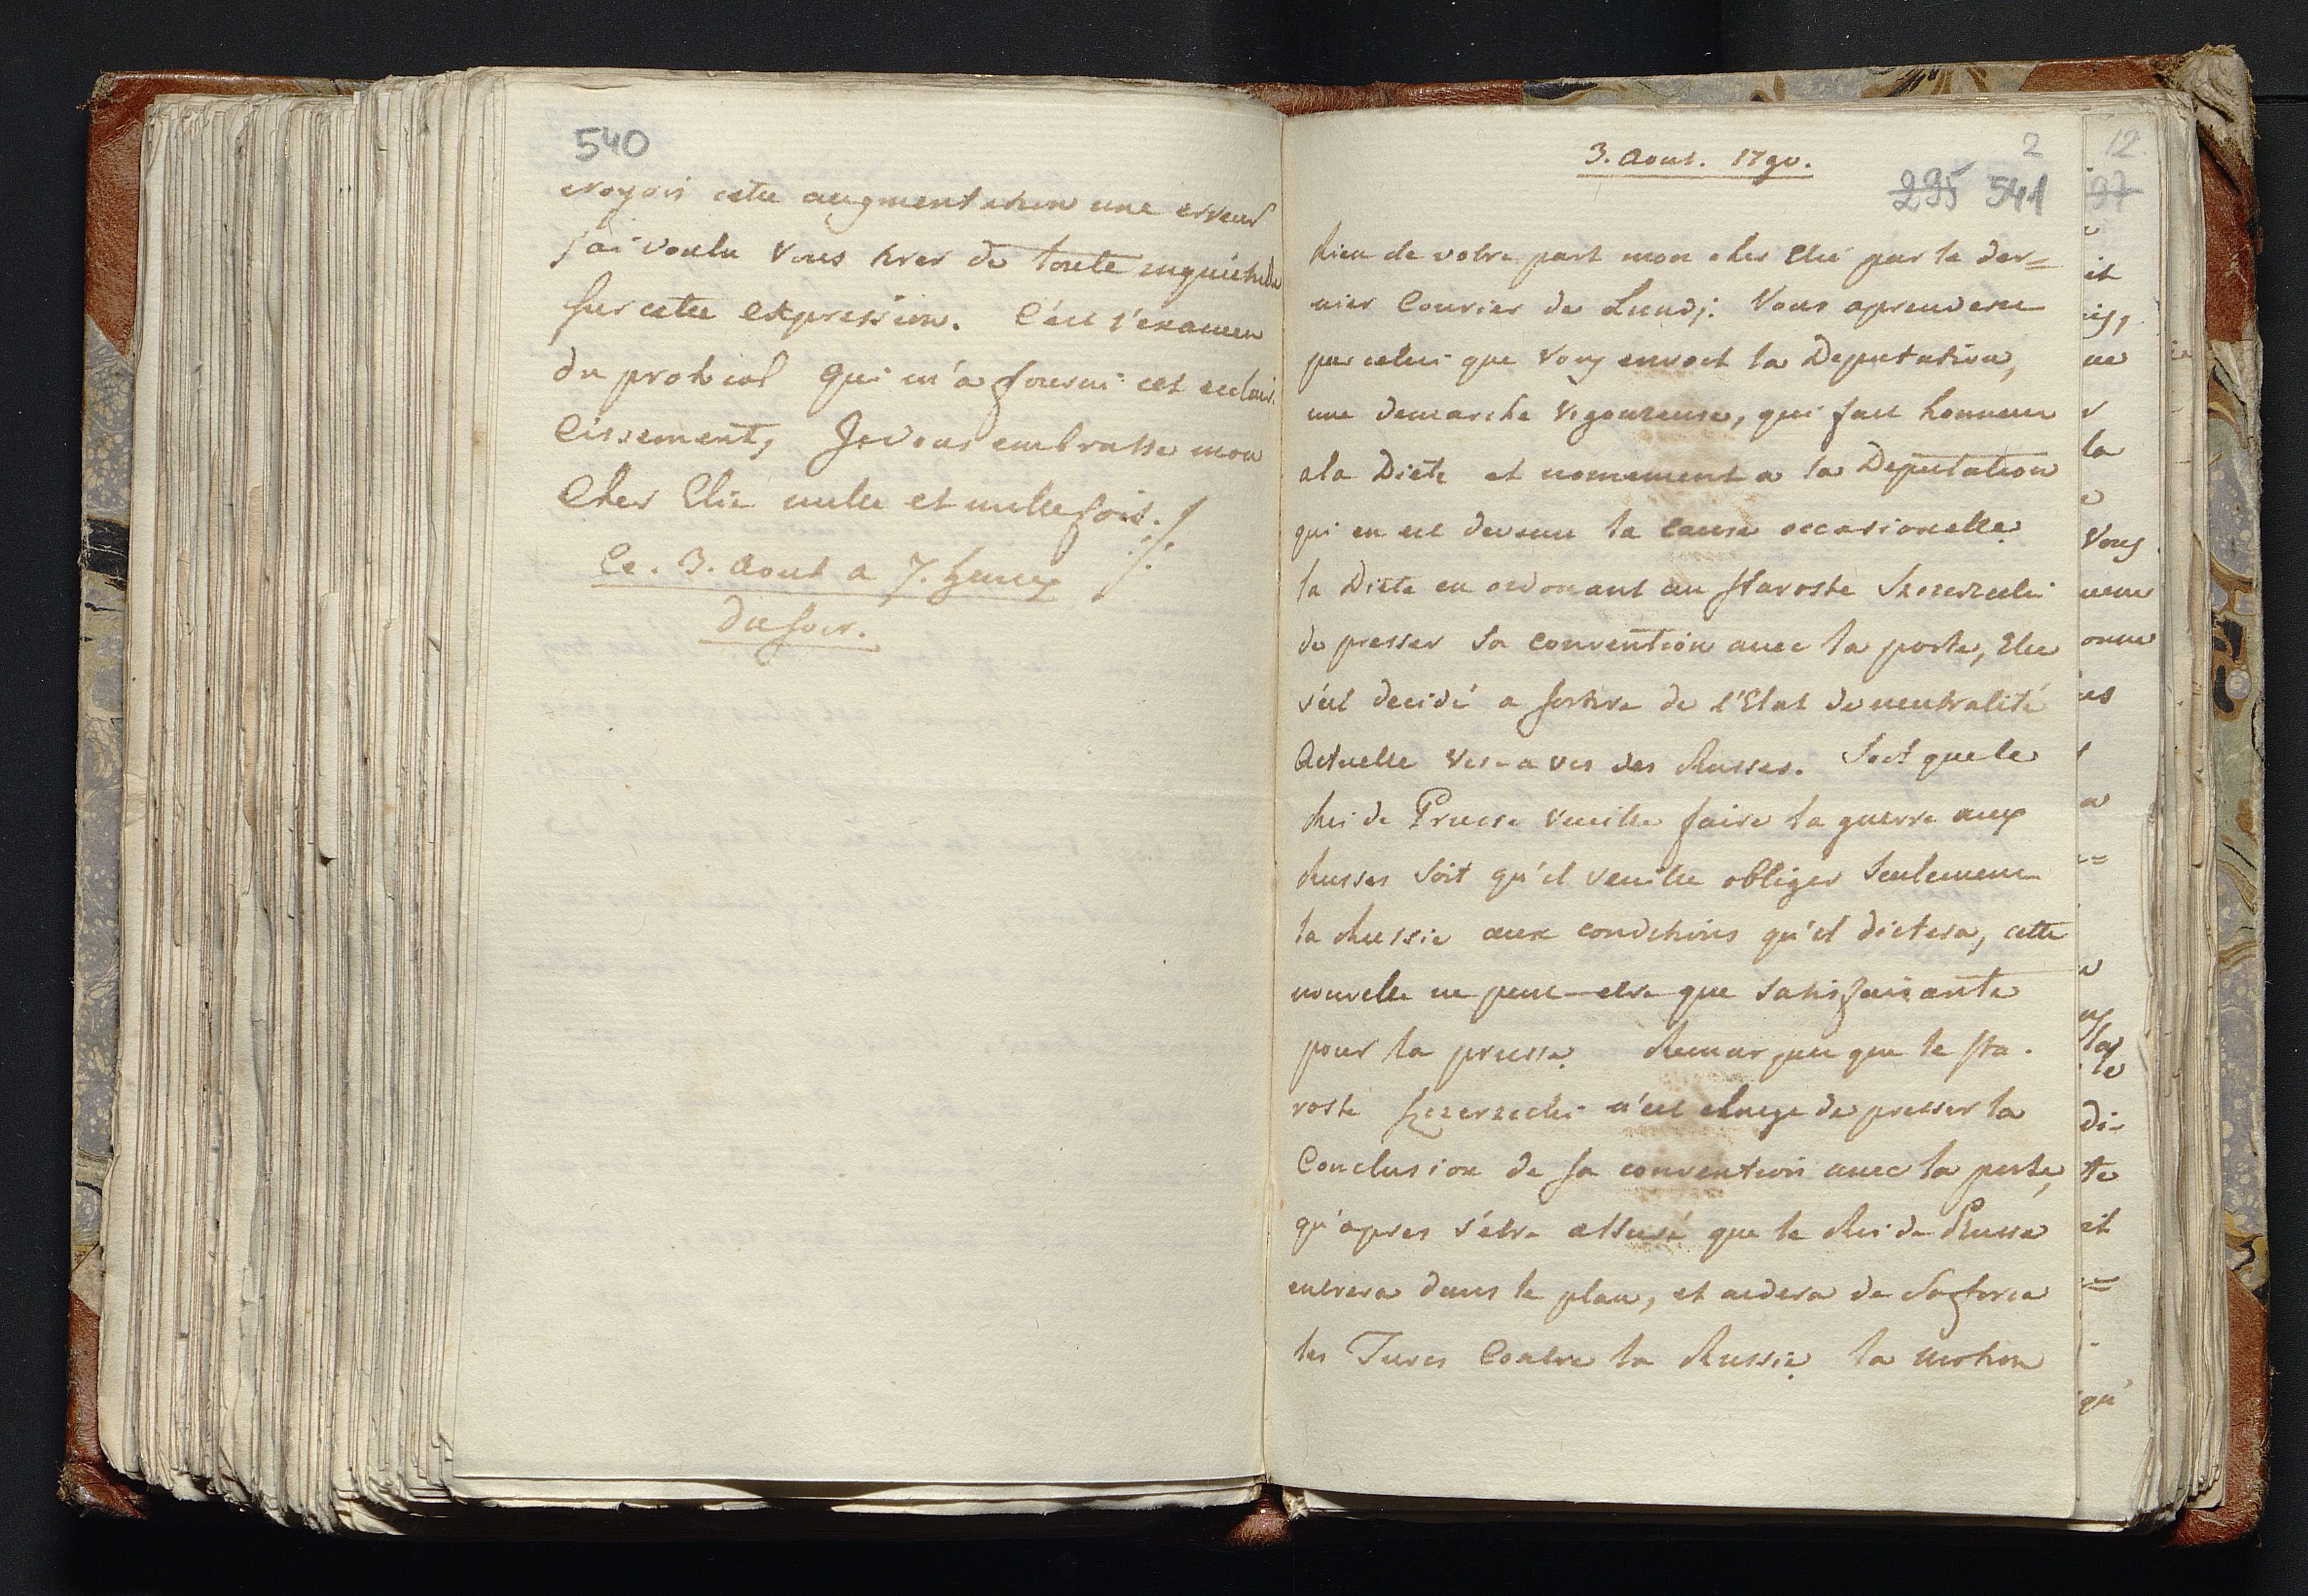 540
croyois cette augmentation une erreur
j'ai voulu vous tirer de toute inquietude
sur cette expression. C'est l'examen
du protocol qui m'a fourni cet eclair
cissement, Je vous embrasse mon
Cher Elie mille et mille fois. /
Ce. 3. Aout a 7. heures ./.
du soir.
3. Aout. 1790.
2
295 541
Rien de votre part mon cher Elie par le der=
nier Courier de Lundj. Vous aprenderez
par celui que vous envoit la Deputation,
une demarche vigoureuse, qui fait honneur
a la Diete et nomement a la Deputation
qui en est devenu la cause occasionelle.
la Diete en ordonant au Staroste
de presser sa convention avec la porte, Elle
s'est decidé a sortire de l'Etat de neutralité
Actuelle vis-a vis des Russes. Soit que le
Roi de Prusse veuille faire la guerre aux
Russes soit qu'il veuille obliger seulement
la Russie aux conditions qu'il dictera, cette
nouvelle ne peut-etre que satisfaisante
pour la prusse. Remarquez que le sta.
roste n'est charge de presser la
Conclusion de sa convention avec la porte,
qu'apres s'etre assuré que le Roi de Prusse
entrera dans le plan, et aidera de sa force
les Turcs Contre la Russie. la motion
12
97
it
la
vous
di-
te
et
qu'